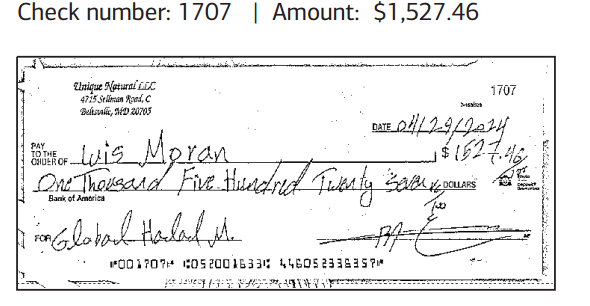 Check number: 1707 | Amount: $1,527.46
Unique Natural LLC
4715 Sellman Road, C
Beltsville, MD 20705
1707
DATE 04/29/2024
PAY TO THE ORDER OF Luis Moran $ 1527.46
One Thousand Five Hundred Twenty Seven 46/100 DOLLARS
Bank of America
FOR Global Hadad M.
⑈001707⑈ ⑆052001633⑆ 446052338357⑈